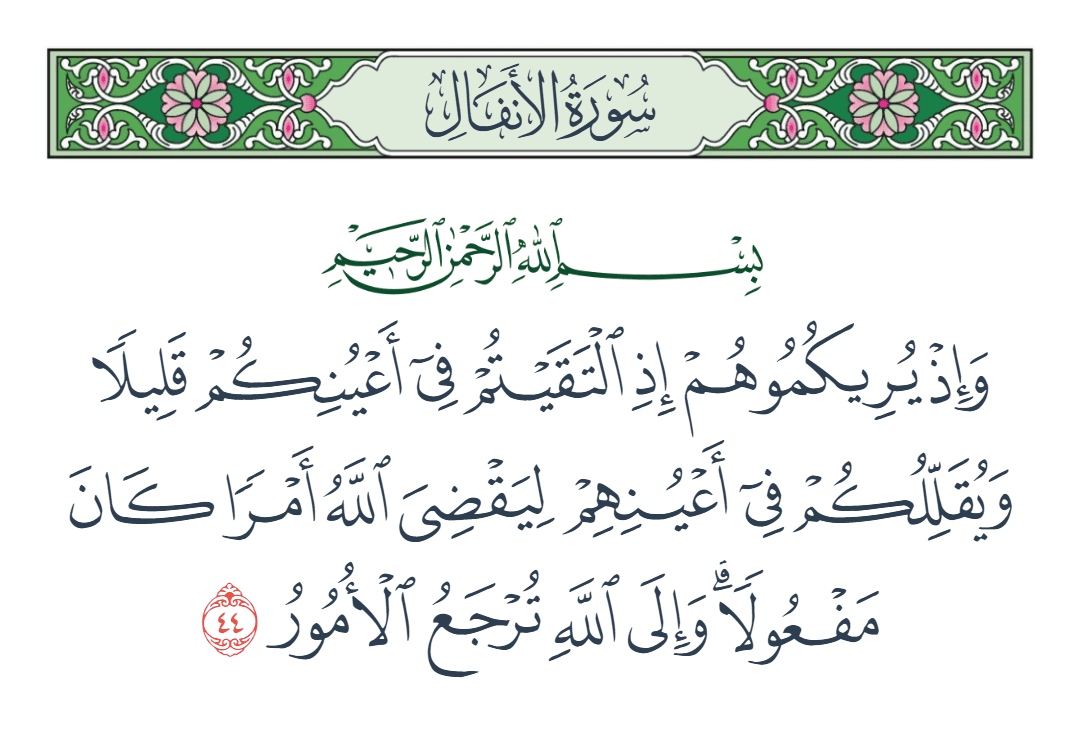 سُورَةُ الأَنفَالِ
بِسْمِ ٱللَّهِ ٱلرَّحْمَٰنِ ٱلرَّحِيمِ
وَإِذْ يُرِيكُمُوهُمْ إِذِ ٱلْتَقَيْتُمْ فِىٓ أَعْيُنِكُمْ قَلِيلًا
وَيُقَلِّلُكُمْ فِىٓ أَعْيُنِهِمْ لِيَقْضِىَ ٱللَّهُ أَمْرًا كَانَ
مَفْعُولًا ۗ وَإِلَى ٱللَّهِ تُرْجَعُ ٱلْأُمُورُ ٤٤